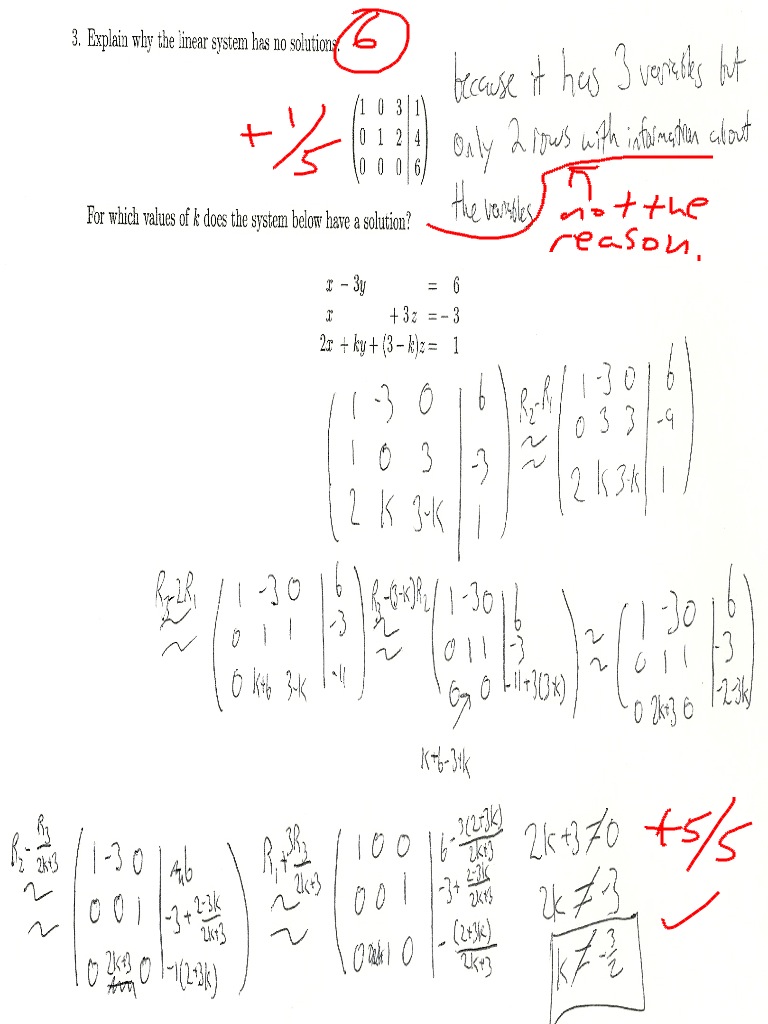 3. Explain why the linear system has no solutions.
6
because it has 3 variables but
only 2 rows with information about
the variables
+1/5
1 0 3 | 1
0 1 2 | 4
0 0 0 | 6
not the
reason.
For which values of k does the system below have a solution?
x − 3y = 6
x + 3z = −3
2x + ky + (3 − k)z = 1
1 -3 0 | 6
1 0 3 | -3
2 k 3-k | 1
R2-R1
~
~
1 -3 0 | 6
0 3 3 | -9
2 k 3-k | 1
R3-2R1
~
~
1 -3 0 | 6
0 1 1 | -3
0 k+6 3-k | -11
R3-(3-k)R2
~
~
1 -3 0 | 6
0 1 1 | -3
0 0 | -11+3(3-k)
k+6-3+k
~
~
1 -3 0 | 6
0 1 1 | -3
0 2k+3 0 | -2-3k
R2 - R3/2k+3
~
~
1 -3 0 | 6
0 0 1 | -3 + 2-3k/2k+3
0 2k+3 0 | -1(2+3k)
R1 + 3R3/2k+3
~
~
1 0 0 | 6 - 3(2+3k)/2k+3
0 0 1 | -3 + 2-3k/2k+3
0 1 0 | - (2+3k)/2k+3
2k+3 ≠ 0
2k ≠ -3
k ≠ -3/2
+5/5
✓